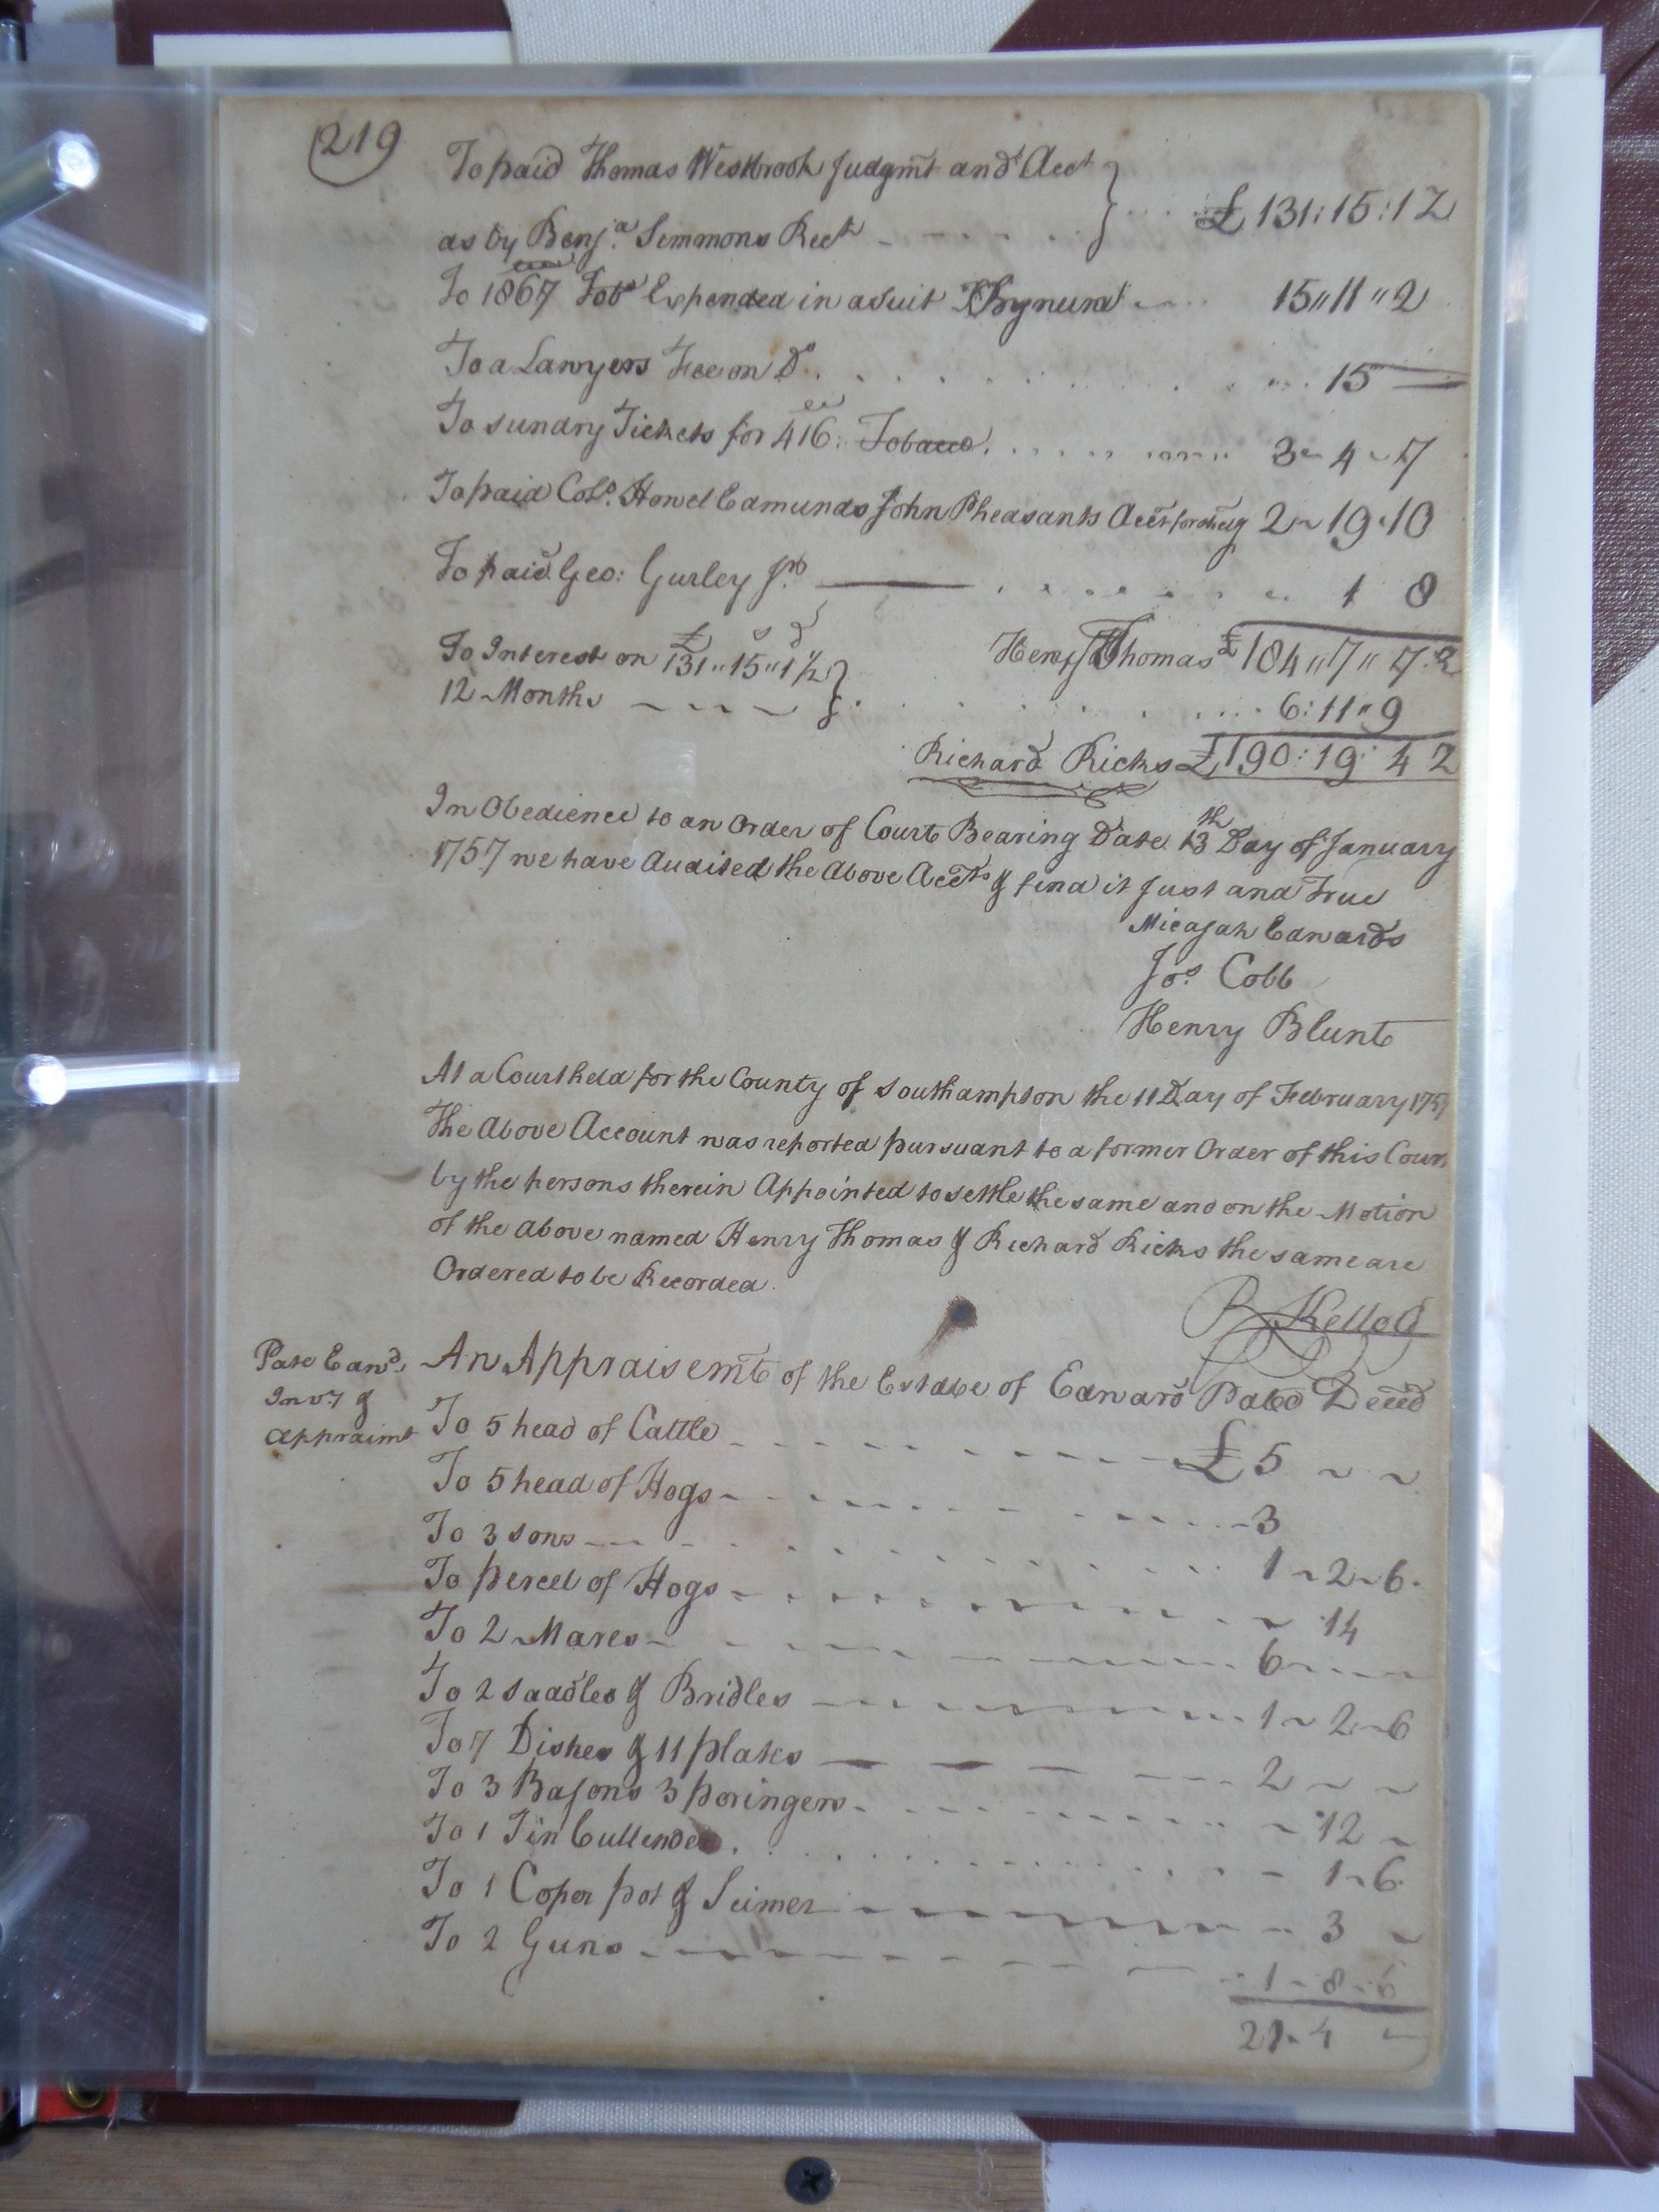 219
To paid Thomas Westbrook Judgmt and Acct
as by Benja. Simmons Rect £ 131:15:1 2
To 1867 Tobo Expended in a Suit Bynum 15,,11,,2
To a Lawyers Fee on Do. 15
To sundry Tickets for 416: Tobacco 3 4 7
To paid Colo. Howel Edmunds John Pheasants Acct for 2 19 10
To paid Geo: Gurley Jr. 1 8
To Interest on £131,,15,,1½ Henry Thomas £184,,7,,7 2
12 Months 6:11,,9
Richard Ricks £190:19:4 2
In Obedience to an Order of Court Bearing Date 13th Day of January
1757 we have Audited the Above Accts & find it Just and True
Micajah Edwards
Jos. Cobb
Henry Blunt
At a Court held for the County of Southampton the 11 Day of February 1757
The Above Account was reported pursuant to a former Order of this Cour
by the persons therein Appointed to settle the same and on the Motion
of the above named Henry Thomas & Richard Ricks the same are
Ordered to be Recorded.
R Kello
Pate Edwd.
Invy &
Appraimt
An Appraisemt of the Estate of Edward Pate Decd
To 5 head of Cattle £5
To 5 head of Hogs 3
To 3 sows 1 2 6
To percel of Hogs 14
To 2 Mares 6
To 2 Saddles & Bridles 1 2 6
To 7 Dishes & 11 plates 2
To 3 Basons 3 poringers 12
To 1 Tin Cullender 1 6
To 1 Coper pot & Scimer 3
To 2 Guns 1 8 6
21 4